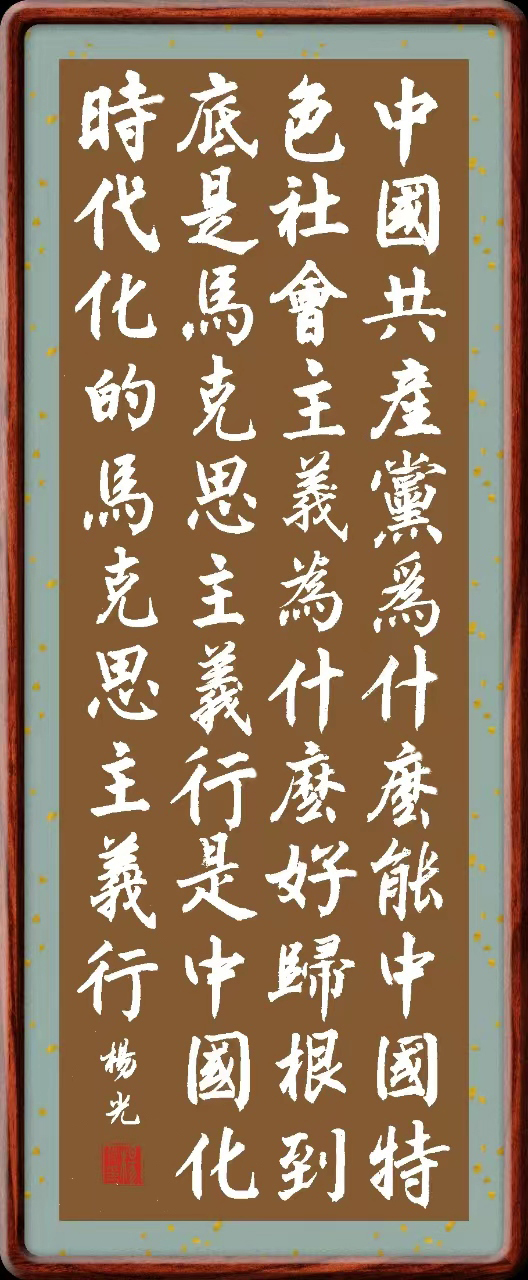 中國共產黨爲什麽能中國特
色社會主義為什麽好歸根到
底是馬克思主義行是中國化
時代化的馬克思主義行
楊光